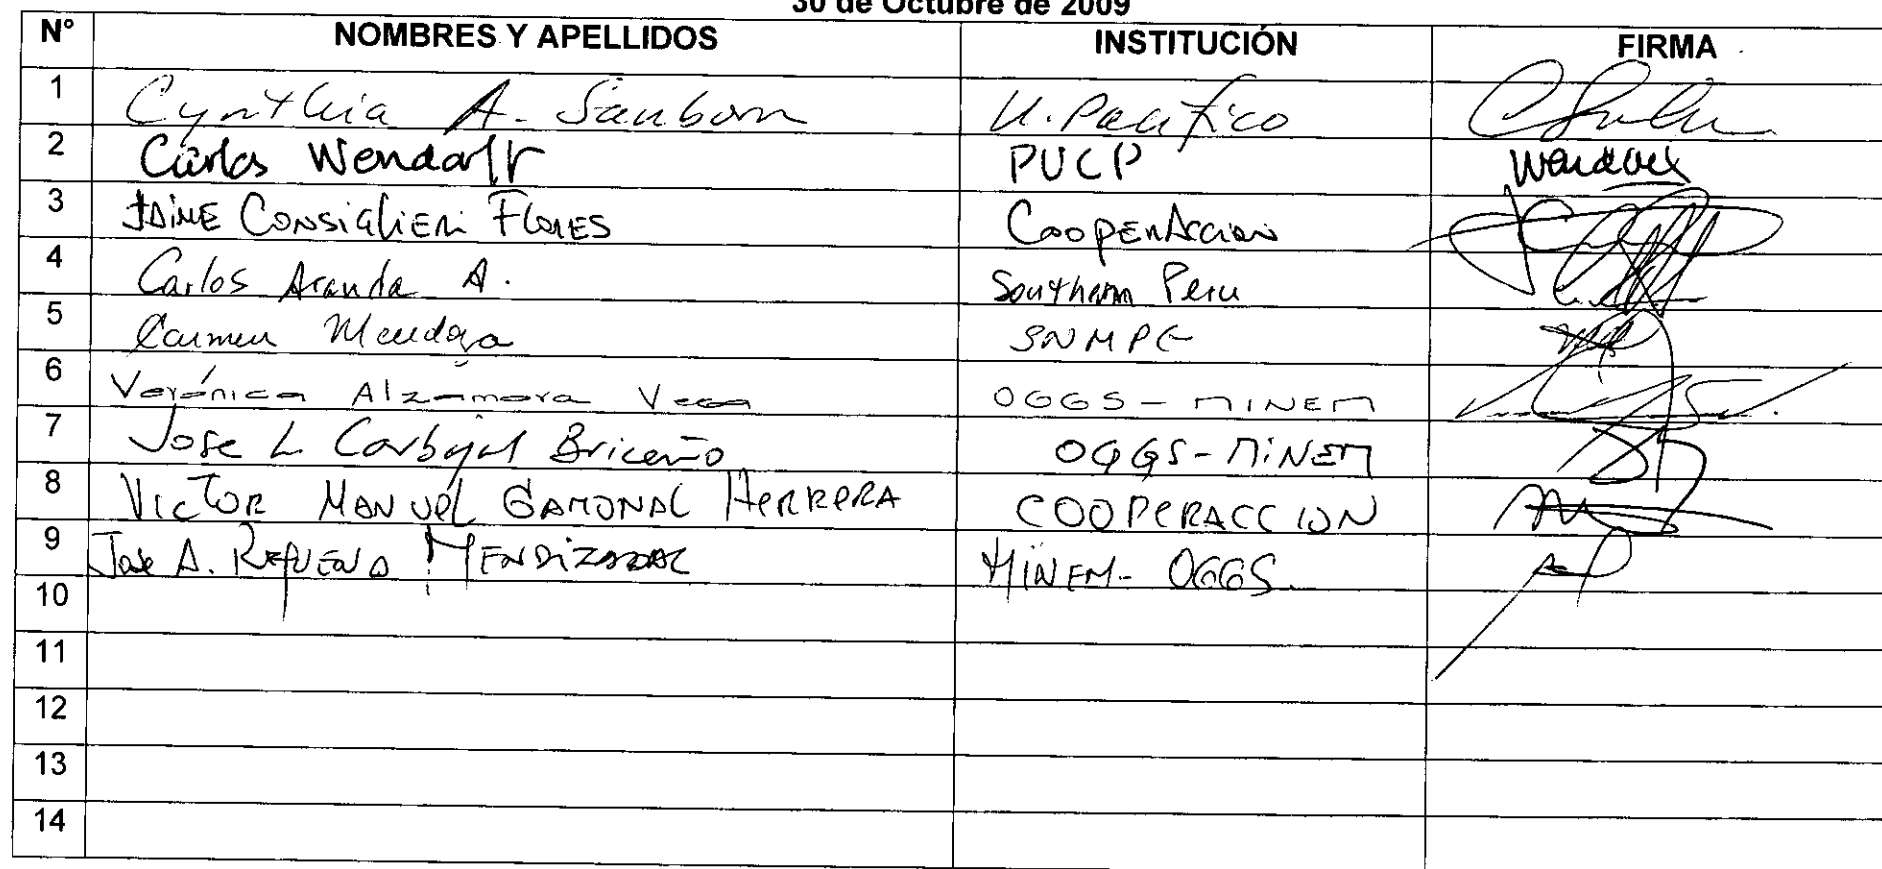 30 de Octubre de 2009
N° NOMBRES Y APELLIDOS INSTITUCIÓN FIRMA
1 Cynthia A. Sanborn U. Pacífico
2 Carlos Wendorff PUCP Wendorff
3 JAIME CONSIGLIERI FLORES CooperAccion
4 Carlos Aranda A. Southern Peru
5 Carmen Mendoza SNMPE
6 Verónica Alzamora Vega OGGS - MINEM
7 Jose L. Carbajal Briceño OGGS - MINEM
8 VICTOR MANUEL GAMONAL HERRERA COOPERACCION
9 Jose A. REQUENA MENDIZABAL MINEM - OGGS.
10
11
12
13
14